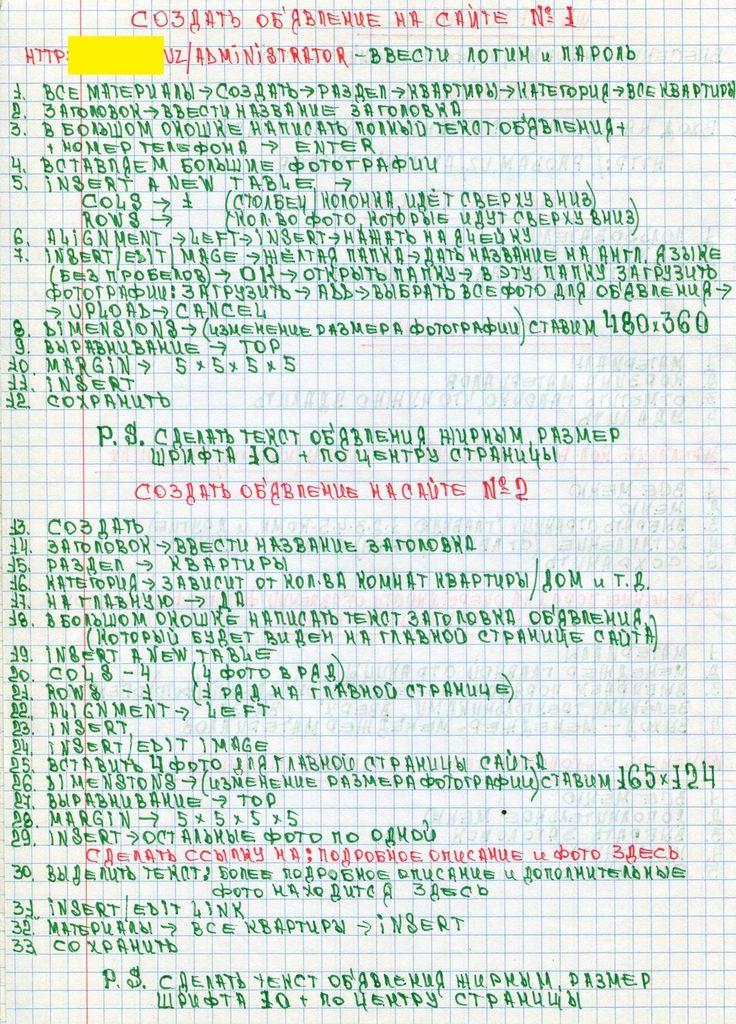 СОЗДАТЬ ОБ'ЯВЛЕНИЕ НА САЙТЕ №1
HTTP: UZ/ADMINISTRATOR - ВВЕСТИ ЛОГИН и ПАРОЛЬ
1. ВСЕ МАТЕРИАЛЫ→СОЗДАТЬ→РАЗДЕЛ→КВАРТИРЫ→КАТЕГОРИЯ→ВСЕ КВАРТИРЫ
2. ЗАГОЛОВОК→ВВЕСТИ НАЗВАНИЕ ЗАГОЛОВКА
3. В БОЛЬШОМ ОКОШКЕ НАПИСАТЬ ПОЛНЫЙ ТЕКСТ ОБ'ЯВЛЕНИЯ+
+ НОМЕР ТЕЛЕФОНА → ENTER
4. ВСТАВЛЯЕМ БОЛЬШИЕ ФОТОГРАФИИ
5. INSERT A NEW TABLE →
COLS → 1 (СТОЛБЕЦ/КОЛОНКА ИДЁТ СВЕРХУ ВНИЗ)
ROWS → (КОЛ-ВО ФОТО, КОТОРЫЕ ИДУТ СВЕРХУ ВНИЗ)
6. ALIGNMENT →LEFT→INSERT→НАЖАТЬ НА ЯЧЕЙКУ
7. INSERT/EDIT/MAGE→ЖЁЛТАЯ ПАПКА→ДАТЬ НАЗВАНИЕ НА АНГЛ. ЯЗЫКЕ
(БЕЗ ПРОБЕЛОВ)→ OK→ОТКРЫТЬ ПАПКУ→ В ЭТУ ПАПКУ ЗАГРУЗИТЬ
ФОТОГРАФИИ: ЗАГРУЗИТЬ→ADD→ВЫБРАТЬ ВСЕ ФОТО ДЛЯ ОБ'ЯВЛЕНИЯ→
→ UPLOAD→CANCEL
8. DIMENSIONS→(ИЗМЕНЕНИЕ РАЗМЕРА ФОТОГРАФИИ) СТАВИМ 480x360
9. ВЫРАВНИВАНИЕ → TOP
10. MARGIN → 5 x 5 x 5 x 5
11. INSERT
12. СОХРАНИТЬ
P. S. СДЕЛАТЬ ТЕКСТ ОБ'ЯВЛЕНИЯ ЖИРНЫМ, РАЗМЕР
ШРИФТА 10 + ПО ЦЕНТРУ СТРАНИЦЫ
СОЗДАТЬ ОБ'ЯВЛЕНИЕ НА САЙТЕ №2
13. СОЗДАТЬ
14. ЗАГОЛОВОК→ВВЕСТИ НАЗВАНИЕ ЗАГОЛОВКА
15. РАЗДЕЛ → КВАРТИРЫ
16. КАТЕГОРИЯ→ ЗАВИСИТ ОТ КОЛ-ВА КОМНАТ КВАРТИРЫ/ДОМ и Т.Д.
17. НА ГЛАВНУЮ → ДА
18. В БОЛЬШОМ ОКОШКЕ НАПИСАТЬ ТЕКСТ ЗАГОЛОВКА ОБ'ЯВЛЕНИЯ,
(КОТОРЫЙ БУДЕТ ВИДЕН НА ГЛАВНОЙ СТРАНИЦЕ САЙТА)
19. INSERT A NEW TABLE
20. COLS - 4 (4 ФОТО В РЯД)
21. ROWS - 1 (1 РЯД НА ГЛАВНОЙ СТРАНИЦЕ)
22. ALIGNMENT→ LEFT
23. INSERT
24. INSERT/EDIT IMAGE
25. ВСТАВИТЬ 4 ФОТО ДЛЯ ГЛАВНОЙ СТРАНИЦЫ САЙТА
26. DIMENSIONS→(ИЗМЕНЕНИЕ РАЗМЕРА ФОТОГРАФИИ) СТАВИМ 165x124
27. ВЫРАВНИВАНИЕ → TOP
28. MARGIN → 5 x 5 x 5 x 5
29. INSERT→ОСТАЛЬНЫЕ ФОТО ПО ОДНОЙ
СДЕЛАТЬ ССЫЛКУ НА: ПОДРОБНОЕ ОПИСАНИЕ и ФОТО ЗДЕСЬ
30. ВЫДЕЛИТЬ ТЕКСТ: БОЛЕЕ ПОДРОБНОЕ ОПИСАНИЕ И ДОПОЛНИТЕЛЬНЫЕ
ФОТО НАХОДИТСЯ ЗДЕСЬ
31. INSERT/EDIT LINK
32. МАТЕРИАЛЫ → ВСЕ КВАРТИРЫ → INSERT
33. СОХРАНИТЬ
P. S. СДЕЛАТЬ ТЕКСТ ОБ'ЯВЛЕНИЯ ЖИРНЫМ, РАЗМЕР
ШРИФТА 10 + ПО ЦЕНТРУ СТРАНИЦЫ